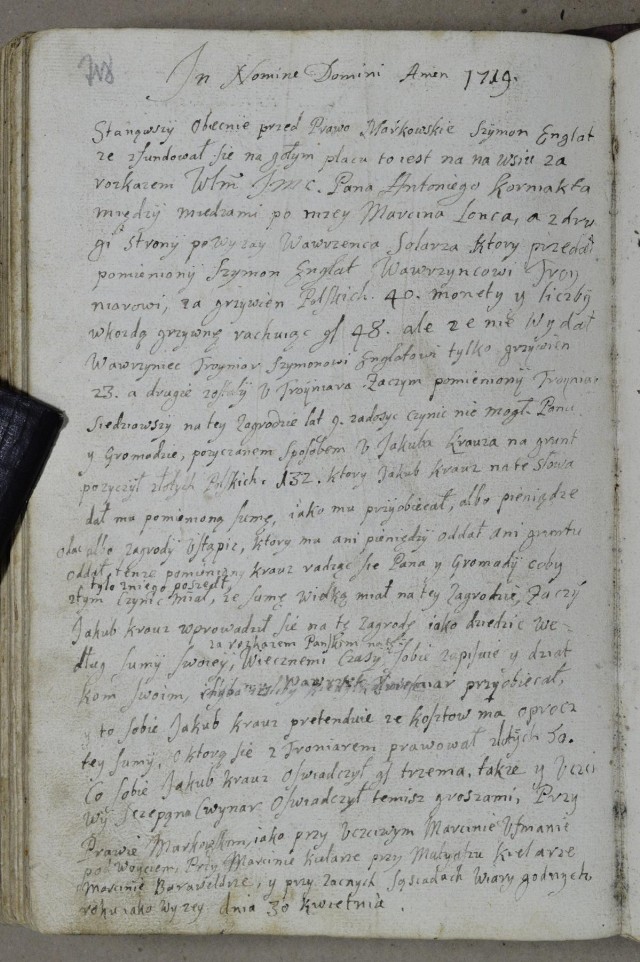 In Nomine Domini Amen 1719.
Stanąwszy Obecnie przed Prawo Markowskie Szymon Englat
ze zfundował sie na gołym placu to iest na na wsiu za
rozkazem Włm Jmc. Pana Antoniego Korniakta
między miedzami po nizey Marcina Lonca, a z dru
gi strony powyzay Wawrzenca Solarza ktory przedał
pomieniony Szymon Englat Wawrzyncowi Troy
niarowi, za grzywien Polskich. 40. monety y liczby
wkozdą grzywnę rachuiąc gł 48. ale ze nie wydał
Wawrzyniec Troyniar Szymonowi Englatowi tylko grzywien
23. a drugie U Troyniara Zaczym pomieniony Troyniar
Siedziowszy na tey Zagrodzie lat 9. zadosyc czynic nie mogł. Panu
y Gromadzie, pozyczanem sposobem U Jakuba Krauza na grunt
pozyczył złotych Polskich. 132. ktory Jakub Krauz na te słowa
dał mu pomienioną sumę, iako mu przyobiecał, albo pieniądze
albo zagrody Ustąpic, ktory ma ani pieniędzy oddał ani gruntu
oddał, tenze pomieniony Krauz radząc sie Pana y Gromady coby
tylo zniego poszedł
ztym czynic miał, ze sumę wielką miał na tey Zagrodzie, Zaczy
Jakub Krauz wprowadził sie na tę Zagrodę iako dziedzic we-
za rozkazem Panskim
dług sumy swoiey, Wiecznemi czasy sobie zapisuie y dziat
kom swoim, przyobiecał,
y to sobie Jakub Krauz pretenduie ze kosztow ma oprocz
tey sumy, o ktorą sie z Troniarem prawował złotych 50.
Co sobie Jakub Krauz Oswiadczył gł trzema, takze y Ucci
wy Cwynar Oswiadczył temisz groszami, Przy
Prawie Markoskim, iako przy Uczciwym Marcinie Ufmanie
pod Woyciem, Przy Marcinie Kielarze przy Matyaszu Kielarze
Marcinie y przy zacnych Sąsiadach Wiary godnych
roku iako wyzey dnia 30 Kwietnia.